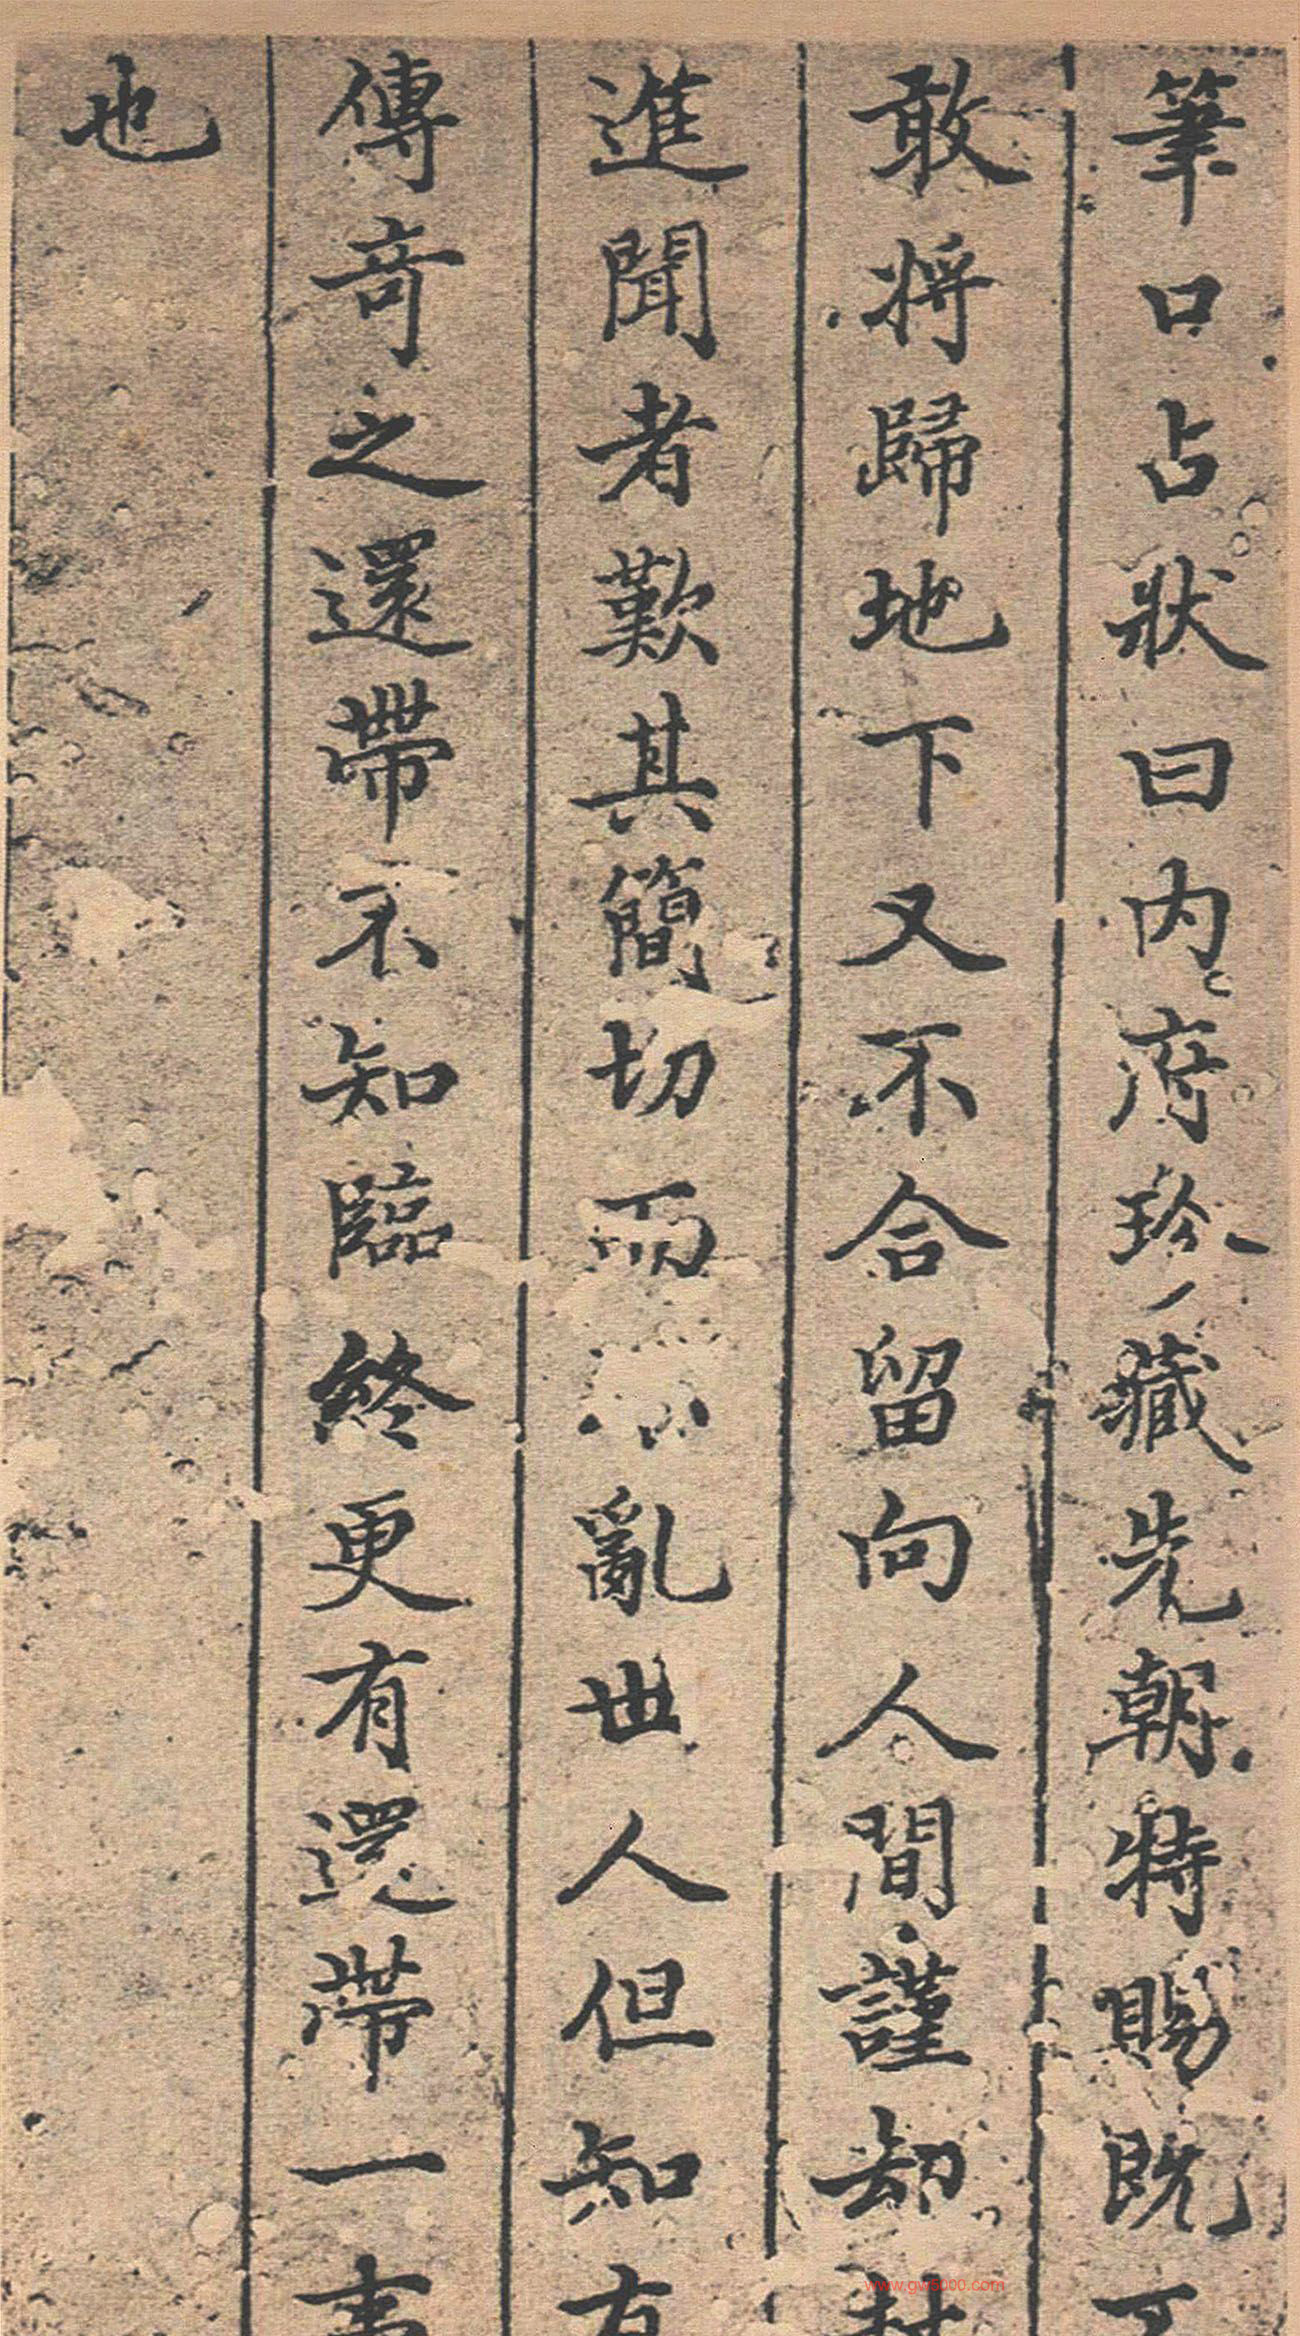 筆口占狀曰内府珍藏先朝特賜既不
敢將歸地下又不合留向人間謹却封
進聞者歎其簡切而不亂世人但知有
傳奇之還帶不知臨終更有還帶一事
也
www.gw5000.com